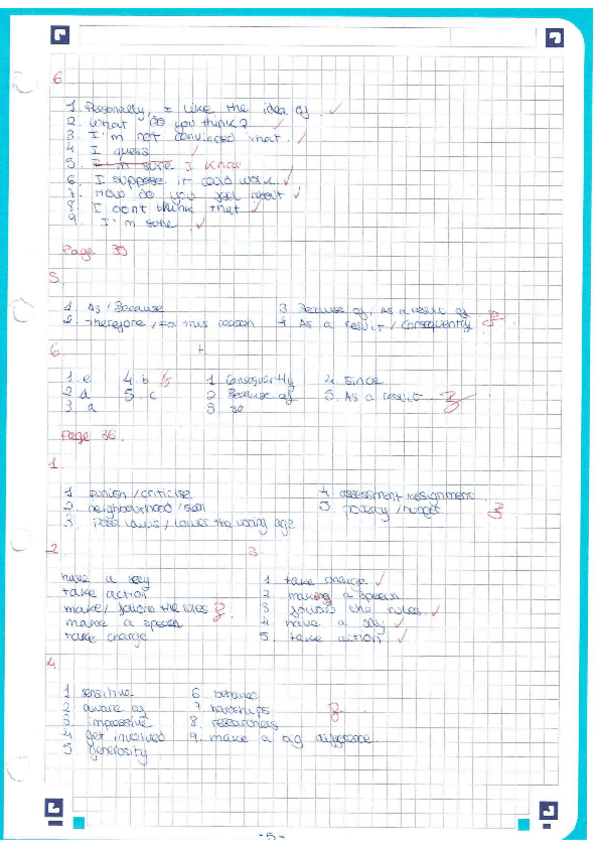 6.
1. Personally, I like the idea of
2. What do you think?
3. I'm not convinced that.
4 I guess
5. I'm sure I know
6. I suppose it could work.
7. How do you feel about
8. I don't think that
9. I'm sure.
Page 35
5.
1. As / Because 3. Because of, As a result of
2. Therefore / for this reason 4 As a result / Consequently
6. 7.
1. e 4. b 1 Consequently 4. Since
2. d 5. c 2. Because of 5. As a result
3. a 3. so
Page 36.
1.
1 punish / criticise 4 assessment / assignment
2. neighbourhood / slum 5 poverty / hunger
3. Pass laws / lower the voting age
2 3
have a say 1 take charge
take action 2 making a speech
make / follow the rules 3 follow the rules
make a speech 4 have a say
take charge 5. take action
4.
1 sensitive 6. behaved
2 aware of 7 hardships
3. impressive 8. researchers
4 get involved 9. make a big difference
5. generosity
-5-